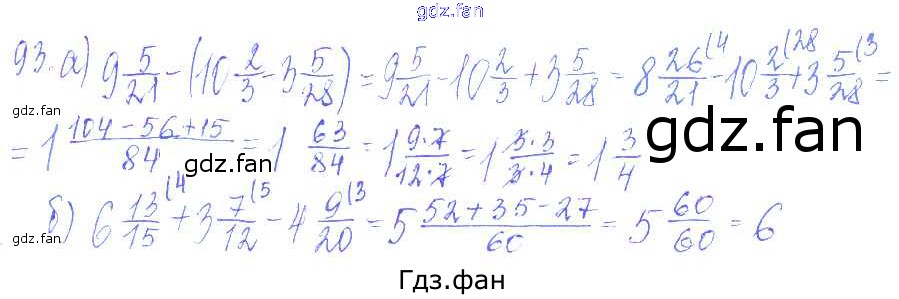 gdz.fan
93. а) 9 5/21 − (10 2/3 − 3 5/28) = 9 5/21 − 10 2/3 + 3 5/28 = 8 26/21 (4 − 10 2/3 (28 + 3 5/28 (3 =
gdz.fan
= 1 (104 − 56 + 15)/84 = 1 63/84 = 1 (9·7)/(12·7) = 1 (3·3)/(3·4) = 1 3/4
gdz.fan
gdz.fan
б) 6 13/15 (4 + 3 7/12 (5 − 4 9/20 (3 = 5 (52 + 35 − 27)/60 = 5 60/60 = 6
Гдз.фан